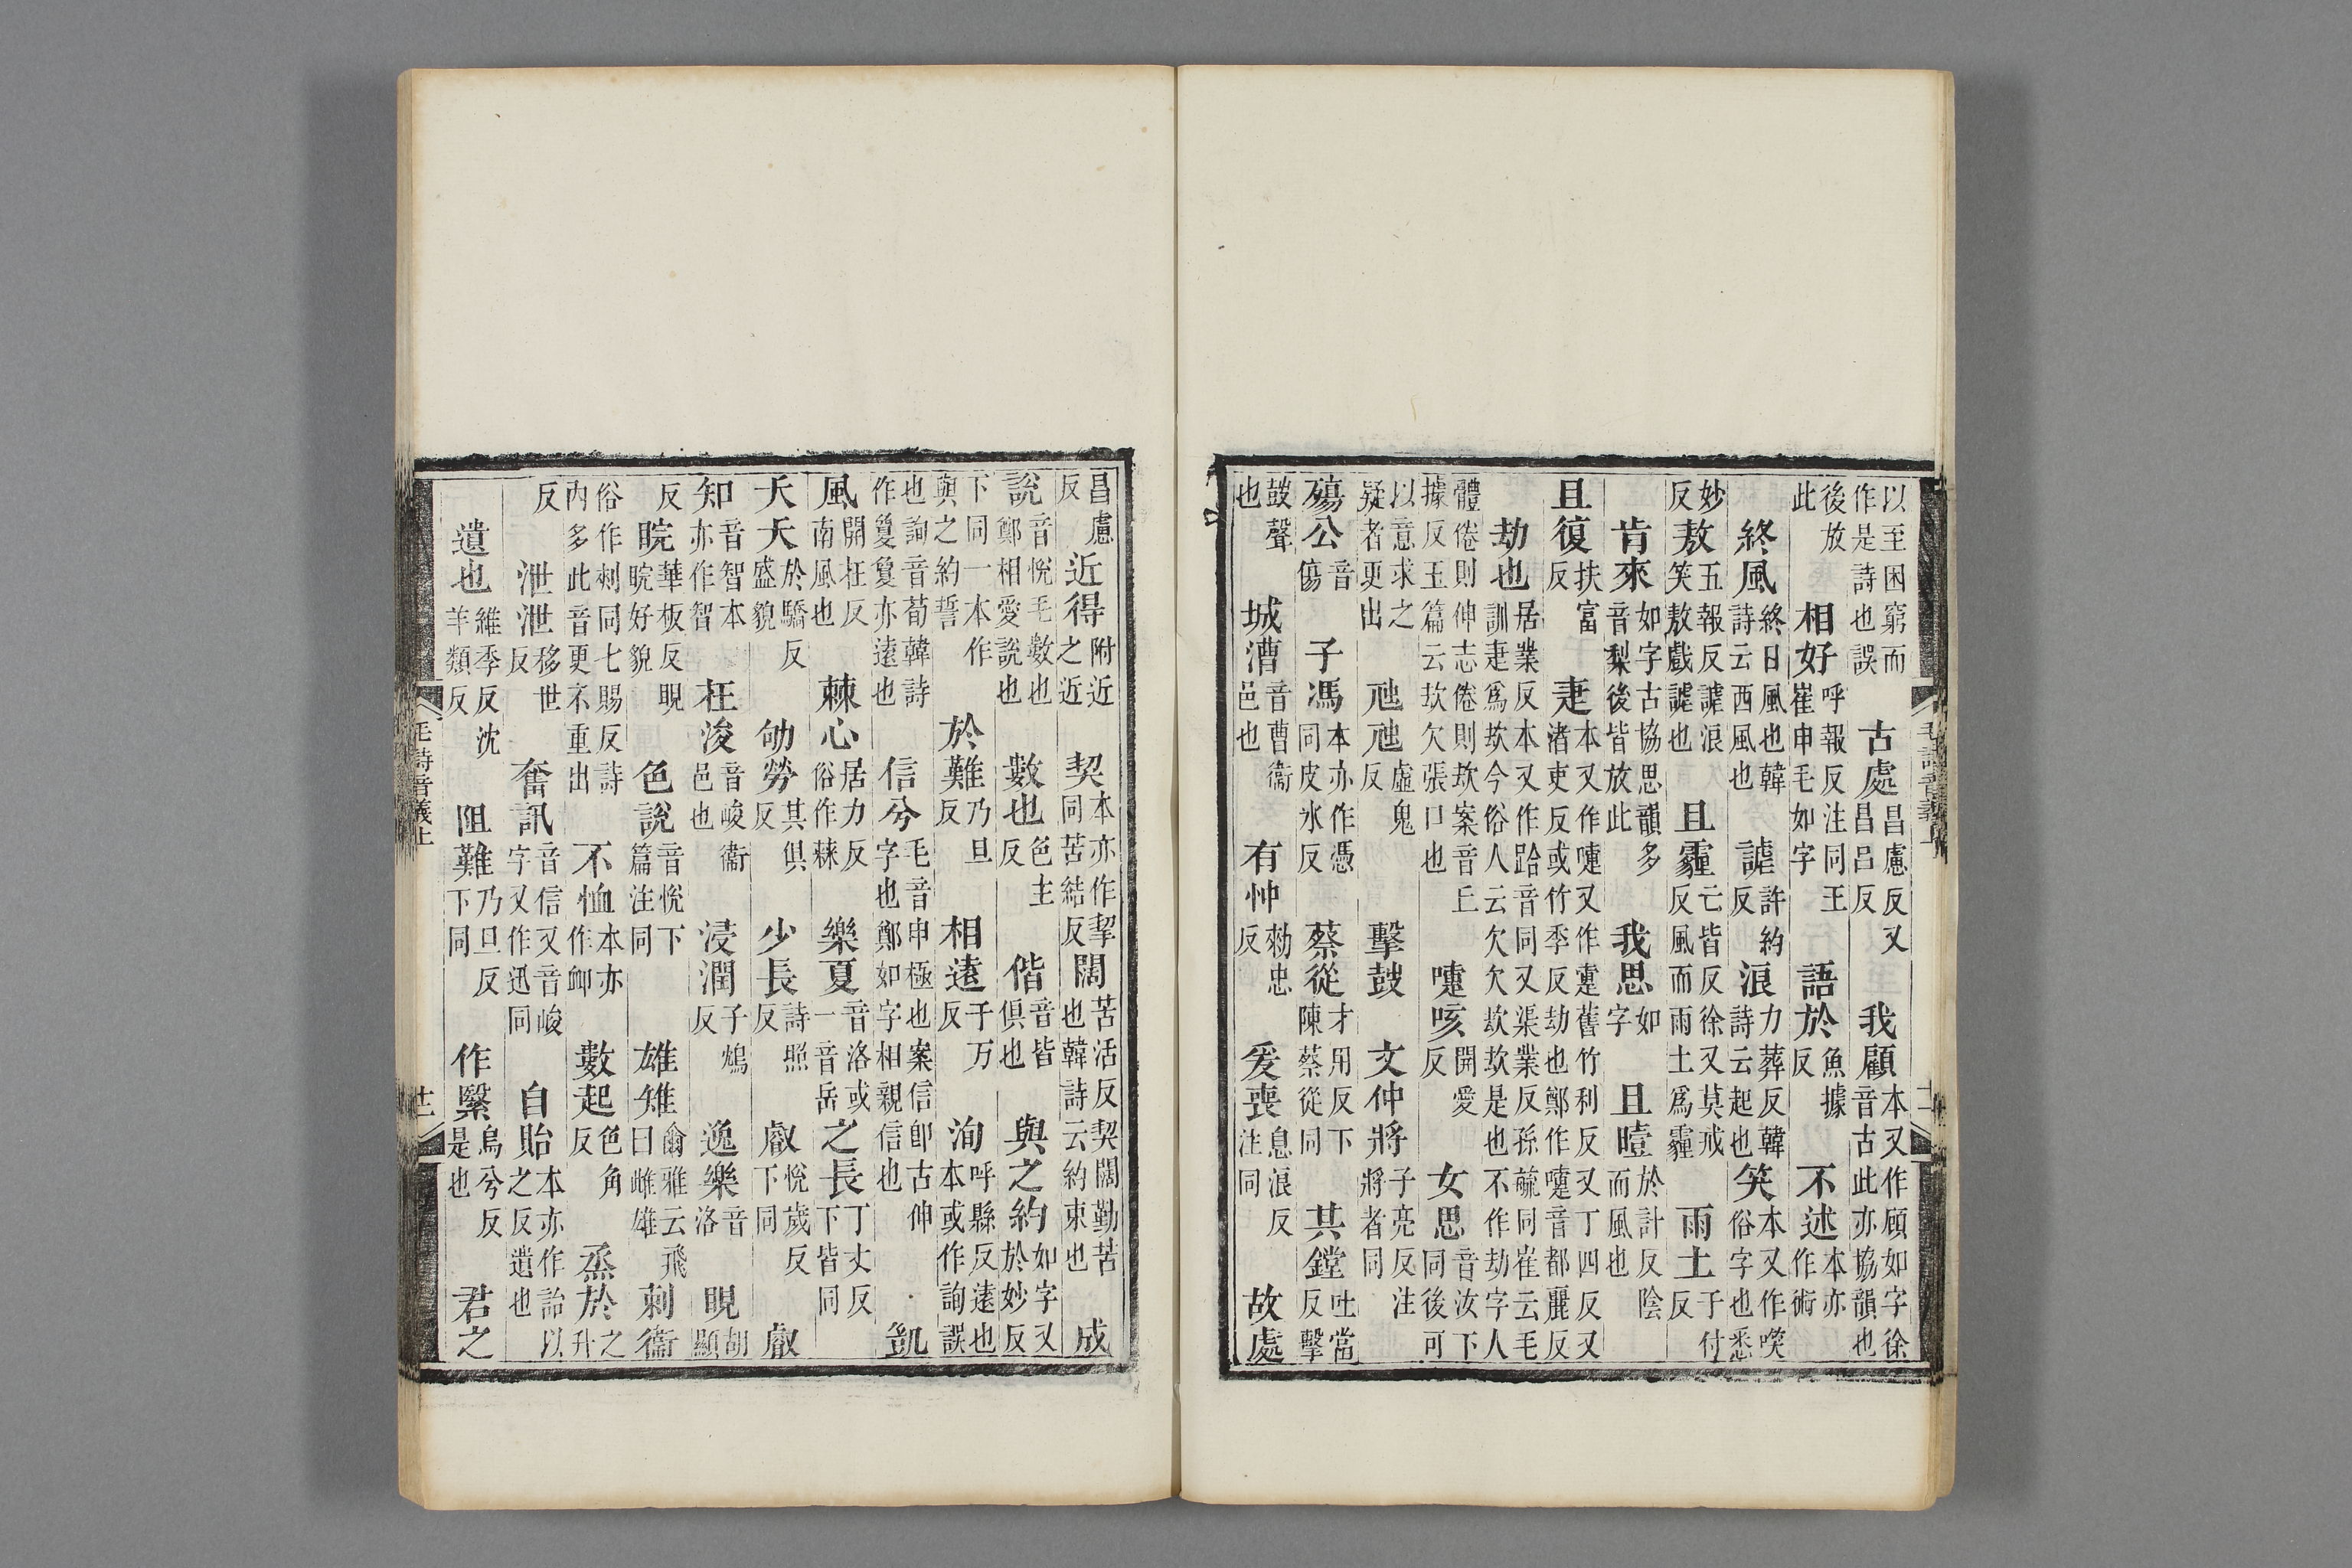 以至困窮而作是詩也誤古處昌慮反又昌呂反我顧本又作頋如字徐音古此亦協韻也
後放此相好呼報反注同王崔申毛如字語於魚據反不述本亦作術
終風終日風也韓詩云西風也謔許約反浪力葬反韓詩云起也笑本又作㗛俗字也悉
妙反敖五報反謔浪笑敖戲謔也且霾亡皆反徐又莫戒反風而雨土爲霾雨土于付反
肯來如字古協思韻多音梨後皆放此我思如字且曀於計反陰而風也
且復扶富反疌本又作嚏又作疐舊竹利反又丁四反又渚吏反或竹季反劫也鄭作嚏音都麗反
劫也居業反本又作跲音同又渠業反孫毓同崔云毛訓疌爲㰦今俗人云欠欠㰦㰦是也不作劫字人
體倦則伸志倦則㰦案音丘據反玉篇云㰦欠張口也嚏咳開愛反女思音汝下同後可
以意求之疑者更出虺虺虛鬼反擊鼓文仲將子亮反注將者同
殤公音傷子馮本亦作憑同皮冰反蔡從才用反下陳蔡從同其鏜吐當反擊
鼓聲也城漕音曹衞邑也有忡勑忠反爰喪息浪反注同故處
昌慮反近得附近之近契本亦作挈同苦結反闊苦活反契闊勤苦也韓詩云約束也成
說音悅毛數也鄭相愛說也數也色主反偕音皆俱也與之約如字又於妙反
下同一本作與之約誓於難乃旦反相遠于万反洵呼縣反遠也本或作詢誤
也詢音荀韓詩作敻敻亦遠也信兮毛音申極也案信卽古伸字也鄭如字相親信也凱
風開枉反南風也棘心居力反俗作𣗥樂夏音洛或一音岳之長丁丈反下皆同
夭夭於驕反盛貌劬勞其俱反少長詩照反叡悅歲反下同叡
知音智本亦作智枉浚音峻衞邑也浸潤子鴆反逸樂音洛睍胡顯
反睆華板反睍睆好貌色說音悅下篇注同雄雉爾雅云飛曰雌雄刺衞
俗作刾同七賜反詩內多此音更不重出不恤本亦作卹數起色角反烝於之升
反泄泄移世反奮訊音信又音峻字又作迅同自貽本亦作詒以之反遺也
遺也維季反沈羊類反阻難乃旦反下同作緊烏兮反是也君之
毛詩音義上
十二